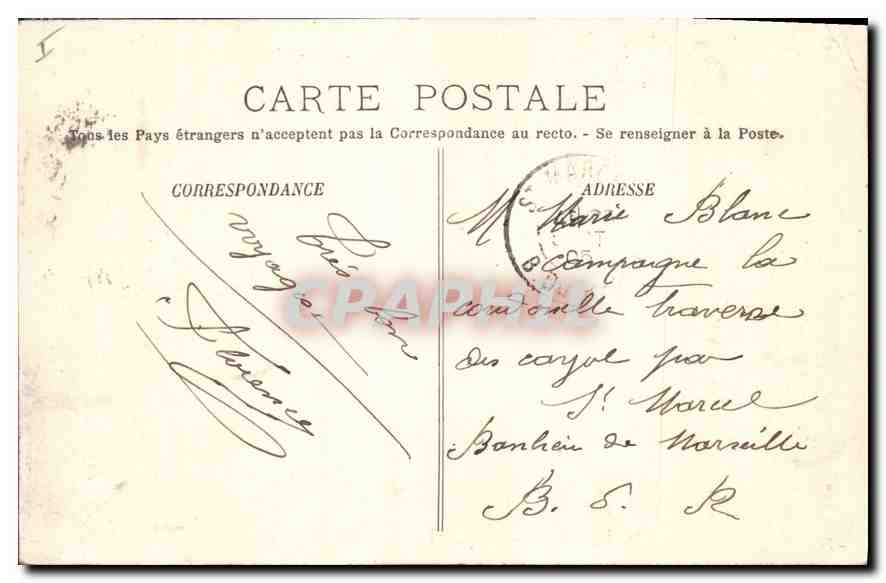 I
CARTE POSTALE
Tous les Pays étrangers n'acceptent pas la Correspondance au recto. - Se renseigner à la Poste.
CORRESPONDANCE
Très bon
voyage
Florence
CPAPHIL
ADRESSE
Marie Blanc
campagne la
traverse
des par
St Marcel
Banlieu de Marseille
B. d. R